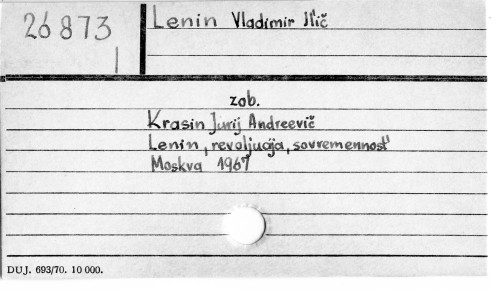 26 873
1
Lenin Vladimir Il'ič
zob.
Krasin Jurij Andreevič
Lenin, revoljucija, sovremennost'
Moskva 1967
DUJ. 693/70. 10 000.